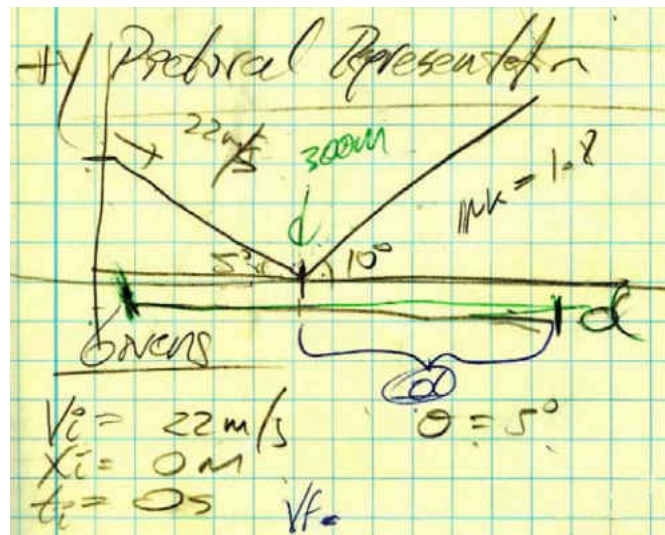 +y Pictorial Representation
22 m/s
300m
μk = 1.8
5° 10°
d
Givens
Vi = 22 m/s θ = 5°
Xi = 0 m
ti = 0s Vf =